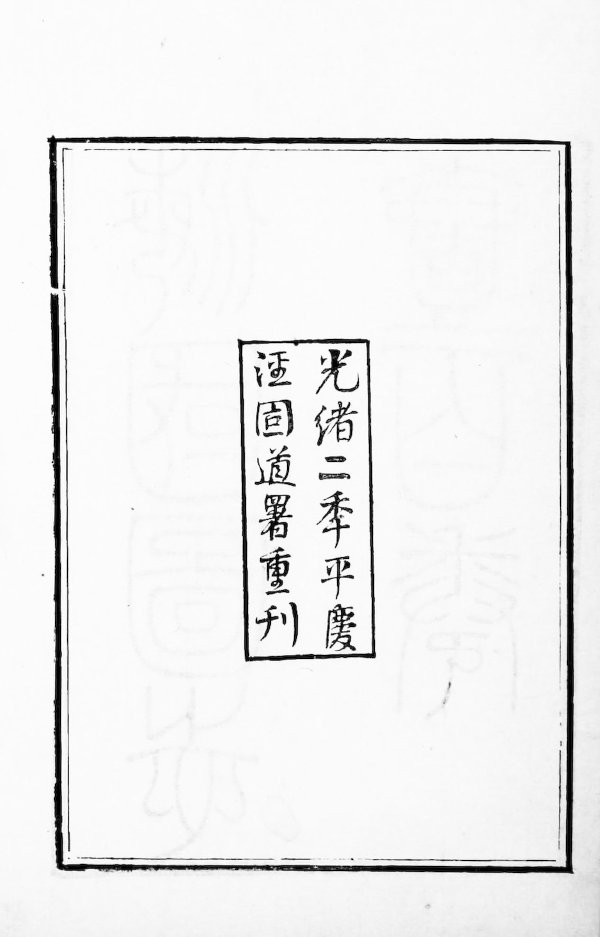 光緒二秊平慶
涇固道署重刊